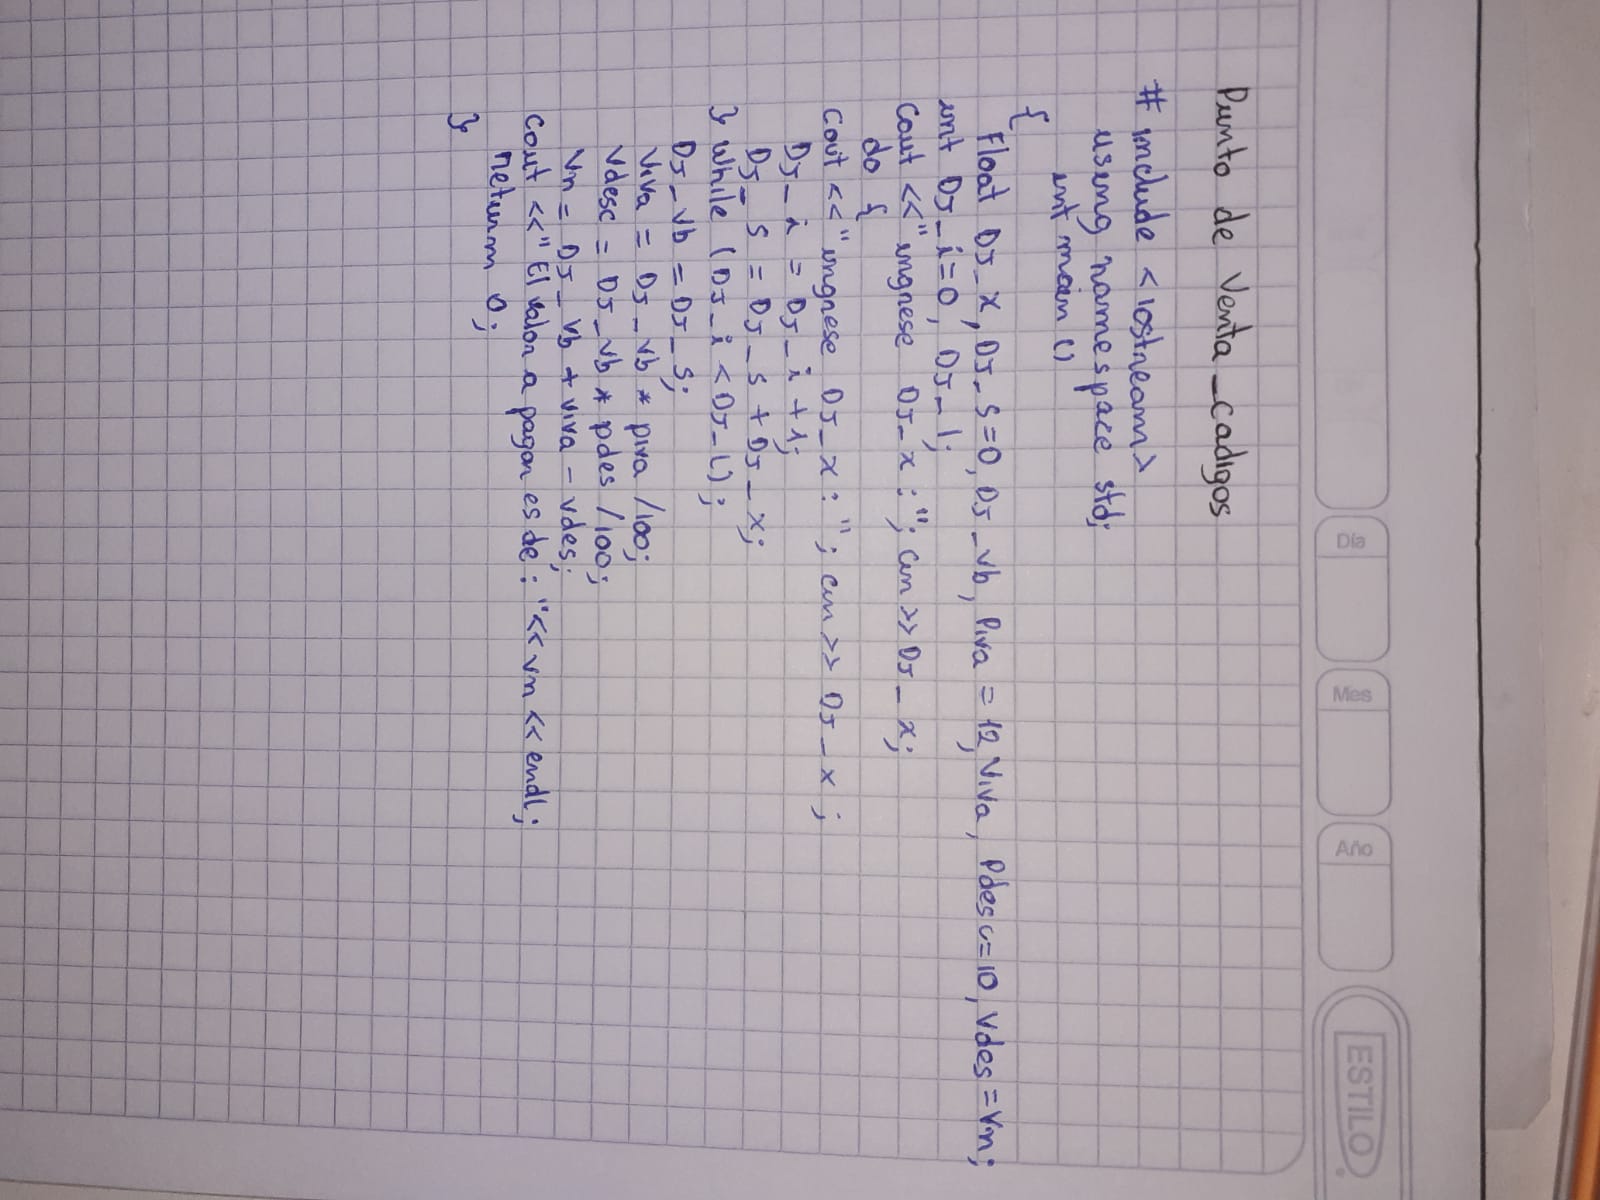 Día
Mes
Año
ESTILO
Punto de Venta _cadigos
# include <iostream>
using namespace std;
int main ()
{
Float DJ_x, DJ_s=0, DJ_vb, Piva = 12, Viva, Pdesc=10, Vdes = Vn;
int DJ_i=0, DJ_l;
Cout <<"ingrese DJ_x : "; cin >> DJ_x;
do {
Cout <<"ingrese DJ_x : "; cin >> DJ_x ;
DJ_i = DJ_i +1;
DJ_s = DJ_s + DJ_x;
} While (DJ_i < DJ_L);
DJ_vb = DJ_s;
Viva = DJ_vb * piva /100;
Vdesc = DJ_vb * pdes /100;
Vn = DJ_vb + viva - vdes;
Cout <<" El valor a pagar es de : "<< vn << endl;
return 0;
}